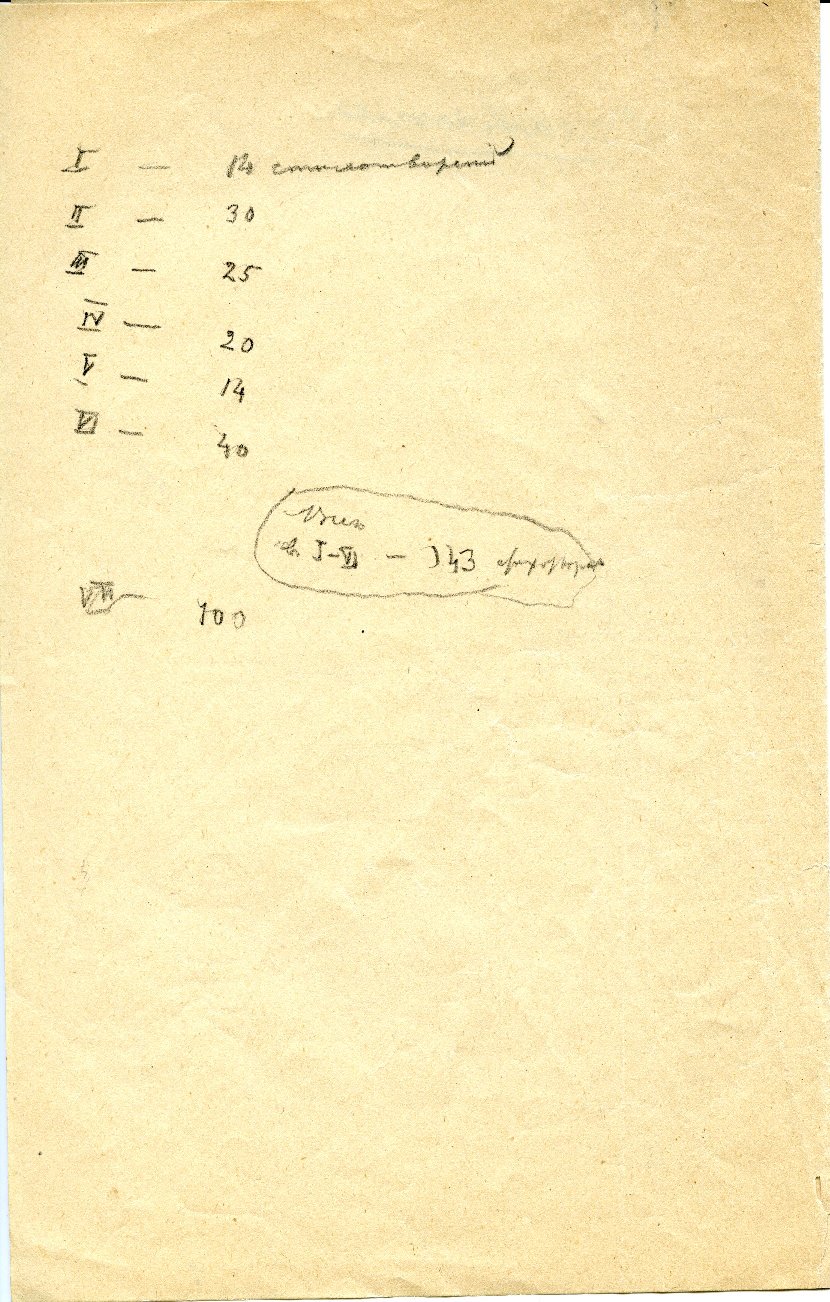 I — 14 стихотворений
II — 30
III — 25
IV — 20
V — 14
VI — 40
в I–VI — 143 стихотвор
VII — 100